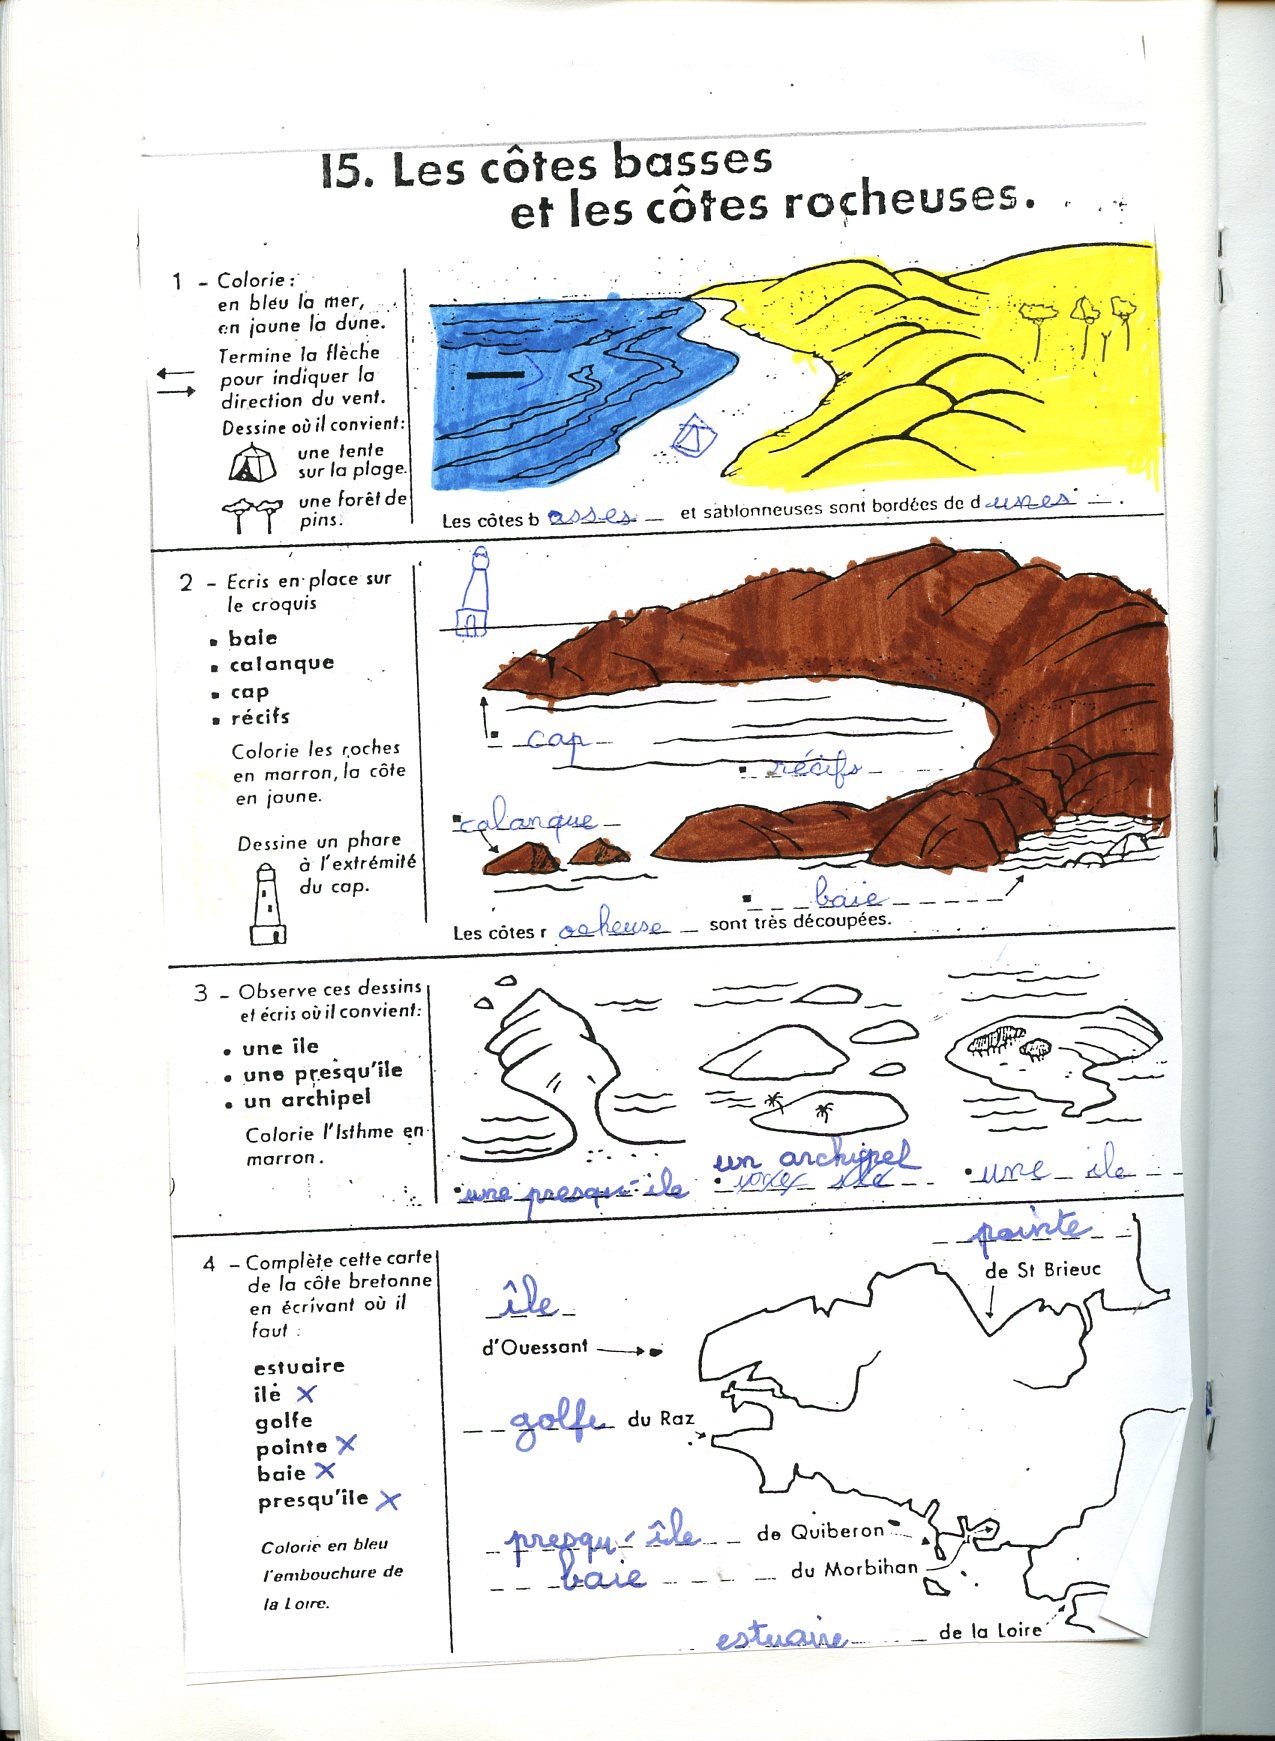 15. Les côtes basses
et les côtes rocheuses.
1 - Colorie :
en bleu la mer,
en jaune la dune.
Termine la flèche
pour indiquer la
direction du vent.
Dessine où il convient:
une tente
sur la plage.
une forêt de
pins.
Les côtes b asses et sablonneuses sont bordées de d unes .
2 - Ecris en place sur
le croquis
▪ baie
▪ calanque
▪ cap
▪ récifs
Colorie les roches
en marron, la côte
en jaune.
Dessine un phare
à l'extrémité
du cap.
cap
récifs
calanque
baie
Les côtes r ocheuse sont très découpées.
3 - Observe ces dessins
et écris où il convient:
• une île
• une presqu'île
• un archipel
Colorie l'Isthme en
marron.
un archipel
• une presqu'île
• une ile
4 - Complète cette carte
de la côte bretonne
en écrivant où il
faut :
estuaire
île x
golfe
pointe x
baie x
presqu'île x
Colorie en bleu
l'embouchure de
la Loire.
pointe
de St Brieuc
île
d'Ouessant
golfe du Raz
presqu'île de Quiberon
baie du Morbihan
estuaire de la Loire